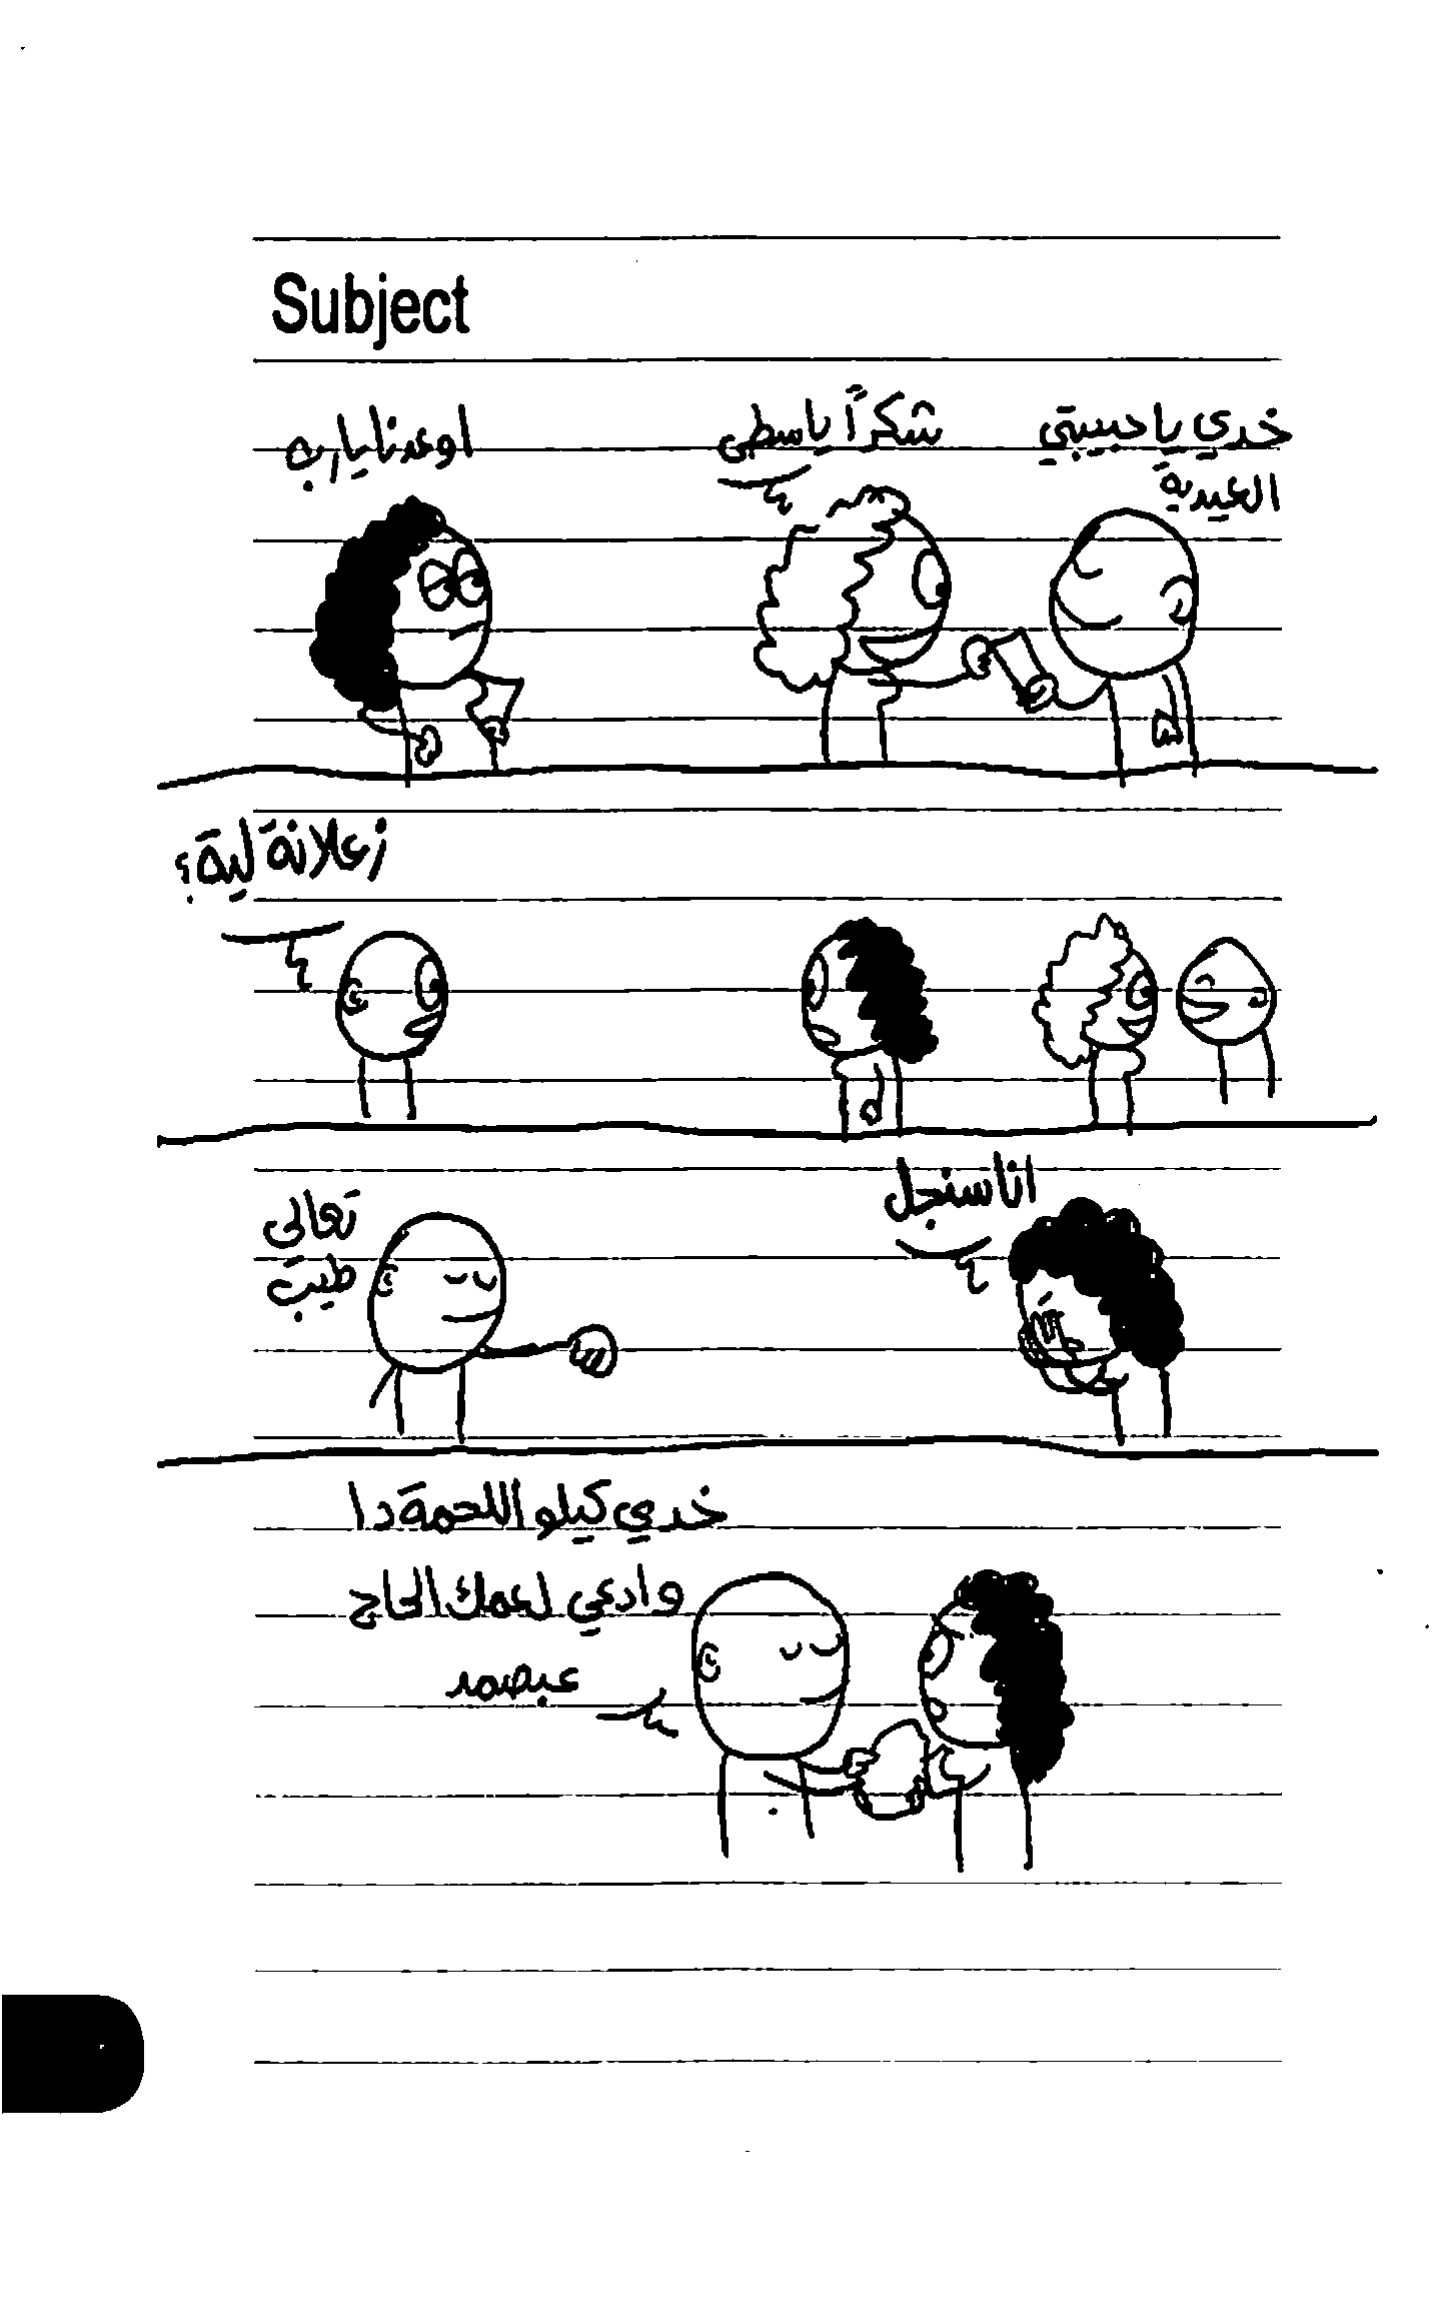 Subject
خدي يا حبيبتي
العيدية
شكراً ياسطى
اوعدنا يا رب
زعلانة لية؟
انا سنجل
تعالى
طيب
خدي كيلو اللحمة دا
وادعي لعمك الحاج
عبصمد